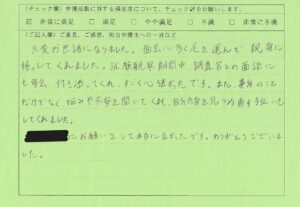 (チェック欄)弁護活動に対する満足度について、チェック✓をお願いします。
☑ 非常に満足 □ 満足 □ やや満足 □ 不満 □ 非常に不満
(ご記入欄)ご意見、ご感想、担当弁護士への一言など
大変お世話になりました。面会に多く足を運んで、親身に
接してくれました。試験観察期間中、調査官との面談に
も毎回、付き添ってくれ、すごく心強かったです。また、事件のこと
だけでなく悩みや不安を聞いてくれ、自分自身を見つめ直す手伝いも
してくれました。
にお願いをして本当に良かったです。ありがとうございま
した。